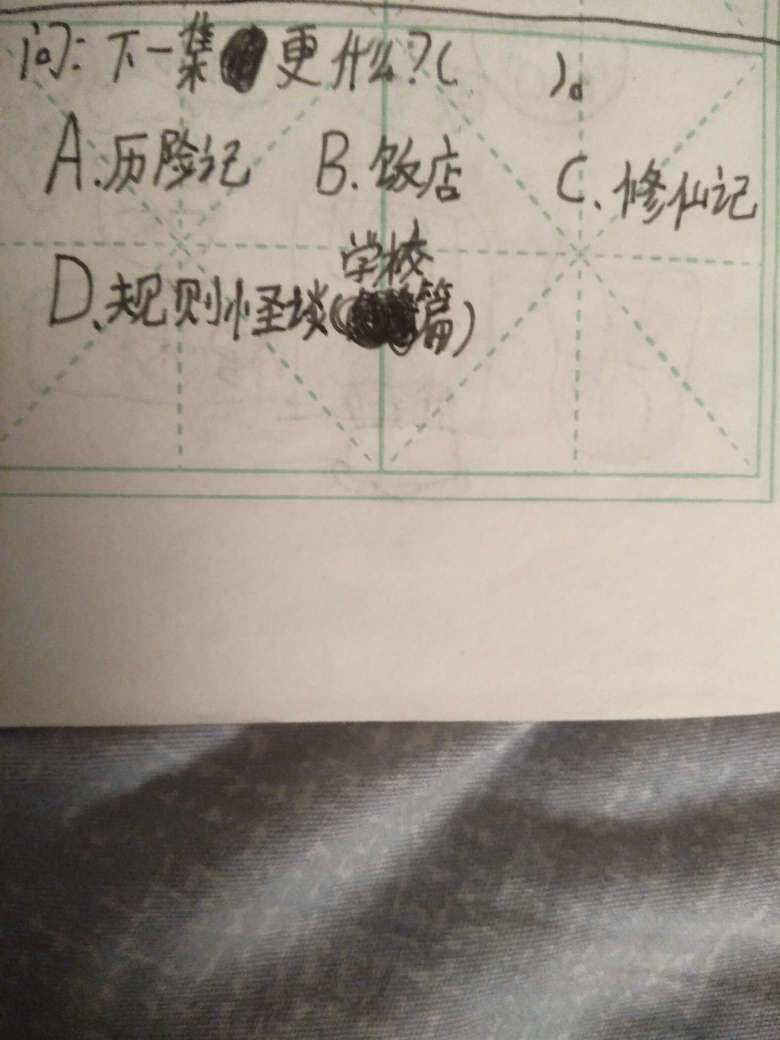 问:下一集更什么?( )。
A.历险记 B.饭店 C.修仙记
D.规则怪谈(学校篇)